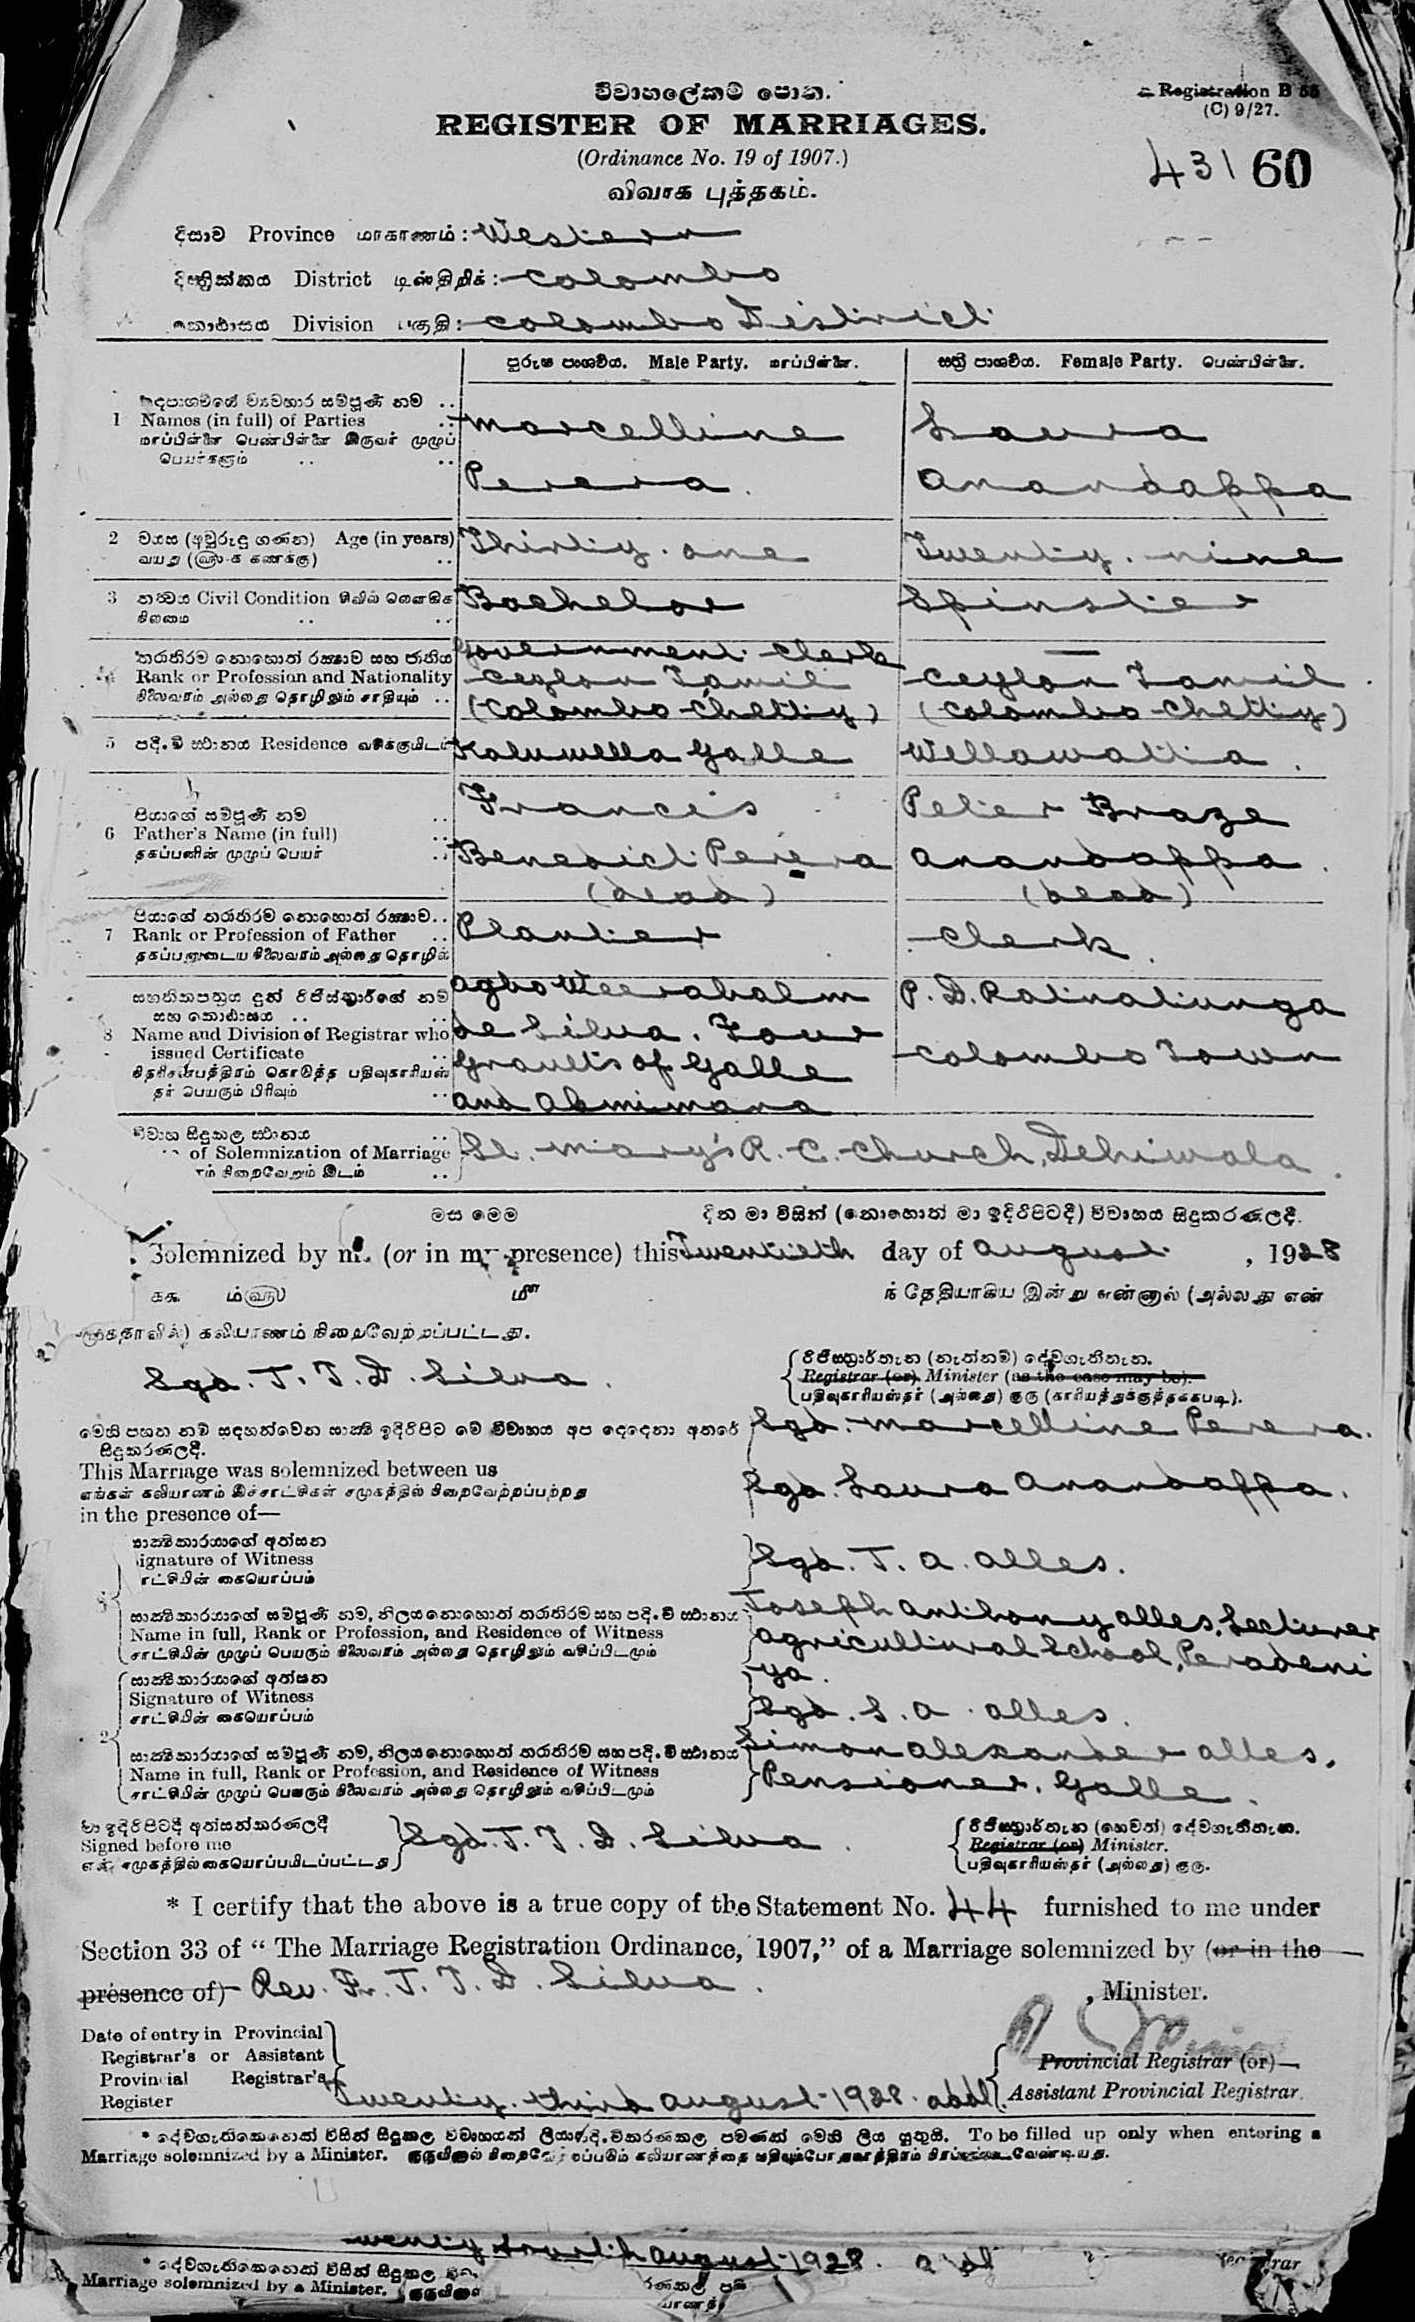 විවාහලේකම් පොත.
Registration B 55
(C) 9/27.
REGISTER OF MARRIAGES.
(Ordinance No. 19 of 1907.)
விவாக புத்தகம்.
431 60
දිසාව Province மாகாணம்: Western
දිස්ත්‍රික්කය District டிஸ்திறிக்: Colombo
කොට්ඨාසය Division பகுதி: Colombo District
පුරුෂ පාර්ශවය. Male Party. மாப்பிள்ளை. ස්ත්‍රී පාර්ශවය. Female Party. பெண்பிள்ளை.
1 Names (in full) of Parties
மாப்பிள்ளை பெண்பிள்ளை இருவர் முழுப்
பெயர்களும்
Marcelline Perera. Laura Anandappa
2 වයස (අවුරුදු ගණන) Age (in years)
வயது
Thirty-one Twenty-nine
3 තත්වය Civil Condition சிவில் லௌகிக
நிலைமை
Bachelor Spinster
තරාතිරම නොහොත් රක්ෂාව සහ ජාතිය
Rank or Profession and Nationality
நிலைவரம் அல்லது தொழிலும் சாதியும்
Government Clerk
Ceylon Tamil Ceylon Tamil
(Colombo Chetty) (Colombo Chetty)
5 පදිංචි ස්ථානය Residence வசிக்குமிடம்
Kaluwella Galle Wellawatta.
පියාගේ සම්පූර්ණ නම
6 Father's Name (in full)
தகப்பனின் முழுப் பெயர்
Francis Peter Braze
Benedict Perera Anandappa.
(dead) (dead)
පියාගේ තරාතිරම නොහොත් රක්ෂාව
7 Rank or Profession of Father
தகப்பனுடைய நிலைவரம் அல்லது தொழில்
Planter Clerk.
සහතිකපත්‍රය දුන් රෙජිස්ත්‍රාර්ගේ නම
සහ කොට්ඨාසය
8 Name and Division of Registrar who
issued Certificate
தர் பெயரும் பிரிவும்
de Silva. Four P. D. Ratnatunga
Gravets of Galle Colombo Town
and Akmimana
විවාහ සිදුකල ස්ථානය
of Solemnization of Marriage
நிறைவேறும் இடம்
St. Mary's R. C. Church, Dehiwala.
මස මෙම දින මා විසින් (නොහොත් මා ඉදිරිපිටදී) විවාහය සිදුකරණලදී.
Solemnized by me (or in my presence) this Twentieth day of August, 1928
ந் தேதியாகிய இன்று என்னால் (அல்லது என்
கலியாணம் நிறைவேற்றப்பட்டது.
Sgd. J. T. D. Silva.
Registrar (or) Minister (as the case may be).
பதிவுகாரியஸ்தர் (அல்லது) குரு (காரியத்துக்குத்தக்கபடி).
මෙහි පහත නම් සඳහන්වෙන සාක්ෂි ඉදිරිපිට මේ විවාහය අප දෙදෙනා අතරේ
සිදුකරණලදී.
Sgd. Marcelline Perera.
This Marriage was solemnized between us
எங்கள் கலியாணம் இச்சாட்சிகள் சமுகத்தில் நிறைவேற்றப்பற்றது
Sgd. Laura Anandappa.
in the presence of—
සාක්ෂිකාරයාගේ අත්සන
Signature of Witness
சாட்சியின் கையொப்பம்
Sgd. J. A. Alles.
සාක්ෂිකාරයාගේ සම්පූර්ණ නම, නිලය නොහොත් තරාතිරම සහ පදිංචි ස්ථානය
Name in full, Rank or Profession, and Residence of Witness
சாட்சியின் முழுப் பெயரும் நிலைவரம் அல்லது தொழிலும் வசிப்பிடமும்
Joseph Anthony Alles, Lecturer
Agricultural School, Peradeni
ya.
සාක්ෂිකාරයාගේ අත්සන
Signature of Witness
சாட்சியின் கையொப்பம்
Sgd. S. A. Alles.
2
සාක්ෂිකාරයාගේ සම්පූර්ණ නම, නිලය නොහොත් තරාතිරම සහ පදිංචි ස්ථානය
Name in full, Rank or Profession, and Residence of Witness
சாட்சியின் முழுப் பெயரும் நிலைவரம் அல்லது தொழிலும் வசிப்பிடமும்
Simon Alexander Alles,
Pensioner, Galle.
මා ඉදිරිපිටදී අත්සන්කරණලදී
Signed before me
என் சமுகத்தில் கையொப்பமிடப்பட்டது
Sgd. J. T. D. Silva.
Registrar (or) Minister.
பதிவுகாரியஸ்தர் (அல்லது) குரு.
* I certify that the above is a true copy of the Statement No. 44 furnished to me under
Section 33 of "The Marriage Registration Ordinance, 1907," of a Marriage solemnized by (or in the
presence of) Rev. Fr. J. T. D. Silva. , Minister.
Date of entry in Provincial
Registrar's or Assistant
Provincial Registrar's
Register
Twenty-third August 1928.
Provincial Registrar (or)
Assistant Provincial Registrar.
To be filled up only when entering a
Marriage solemnized by a Minister.
August 1928.
Marriage solemnized by a Minister.